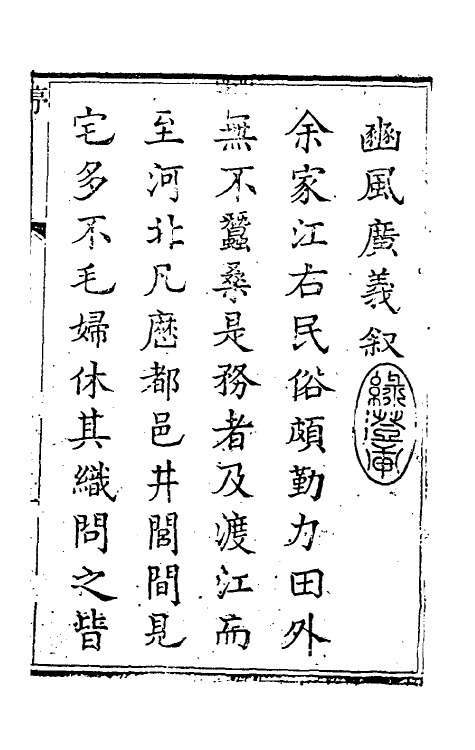 豳風廣義叙
綠澄軍
余家江右民俗頗勤力田外
無不蠶桑是務者及渡江而
至河北凡歷都邑井閭間見
宅多不毛婦休其織問之皆
序